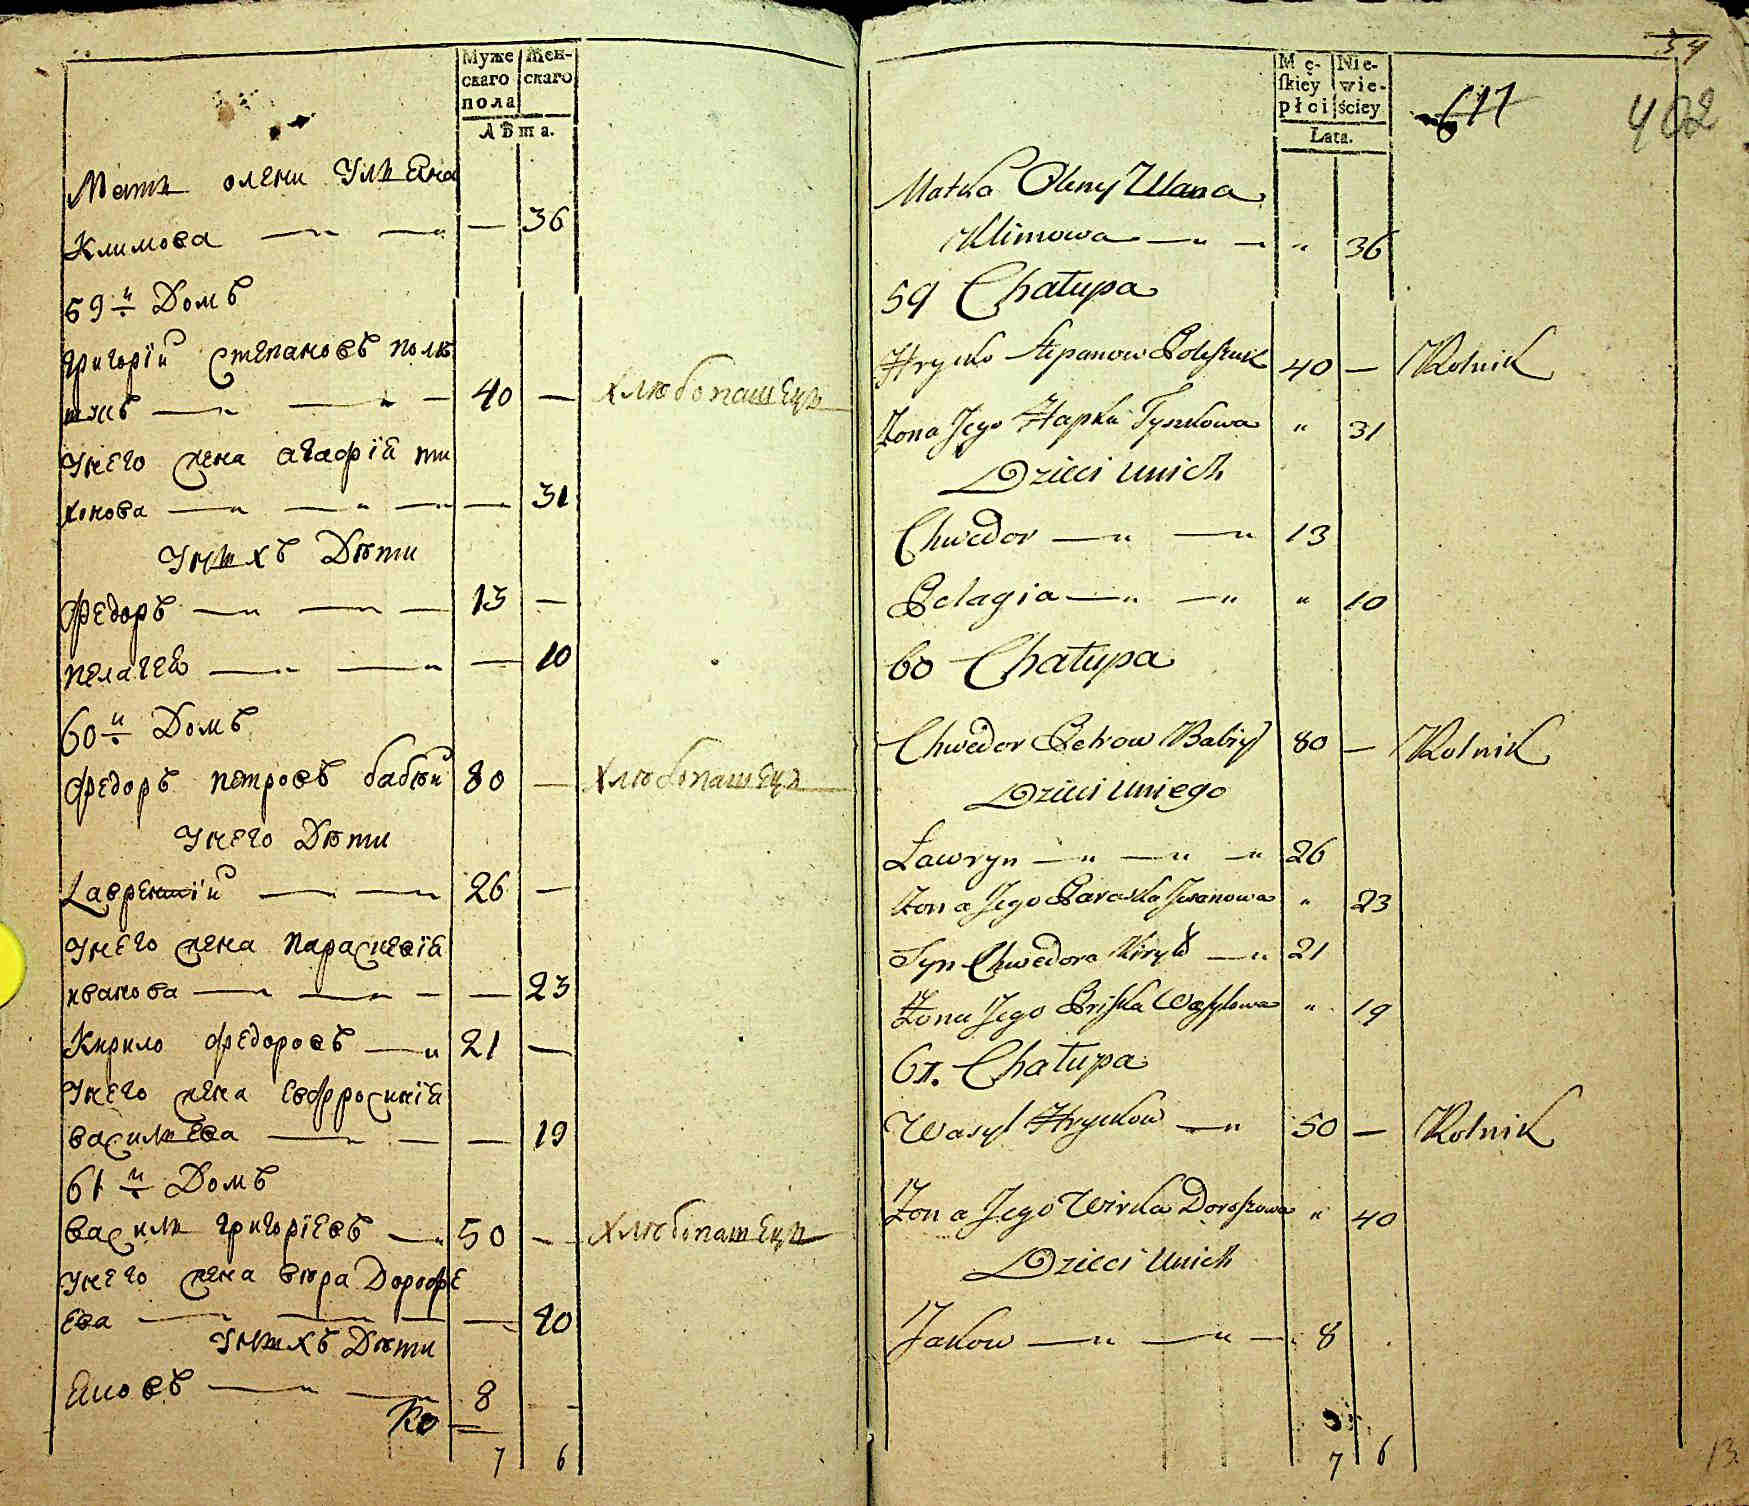 Муже
скаго
пола
Жен-
скаго
Лѣта.
Мати олени Улияна
Климова — — — 36
59 й Домъ
Григорій Степановъ полѣ
щукъ — — — 40 — хлѣбопашецъ
Унего жена агафія ти
хонова — — — — 31
Унихъ Дѣти
Федоръ — — — 13 —
пелагея — — — 10
60 й Домъ
Федоръ петровъ бабѣй 80 — хлѣбопашецъ
Унего Дѣти
Лаврентій — — 26 —
Унего жена параскевія
иванова — — — — 23
Кирило федоровъ — 21 —
Унего жена Евфросинія
василиева — — — 19
61 й Домъ
василь григоріевъ — 50 — хлѣбопашецъ
Унего жена вѣра Дорофе
ева — — — — 40
Унихъ Дѣти
Яковъ — — 8 -
7 6
Mę-
skiey
płci
Nie-
wie-
ściey
Lata.
54
617
402
Matka Oleny Ulana
Klimowa — — " 36
59 Chałupa
Hryćko Stepanow Poleszuk 40 — Rolnik
Żona Jego Hapka Tyszkowa " 31
Dzieci unich
Chwedor — — 13
Pelagia — — " 10
60 Chałupa
Chwedor Petrow Babiy 80 — Rolnik
Dzieci uniego
Ławryn — — — 26
Żona Jego Paraska Jwanowa " 23
Syn Chwedora Kiryło — 21
Żona Jego Pryska Wasylowa " 19
61. Chałupa
Wasyl Hryćkow — 50 — Rolnik
Żona Jego Wirka Doroszowa " 40
Dzieci unich
Jakow — — — 8
7 6
13